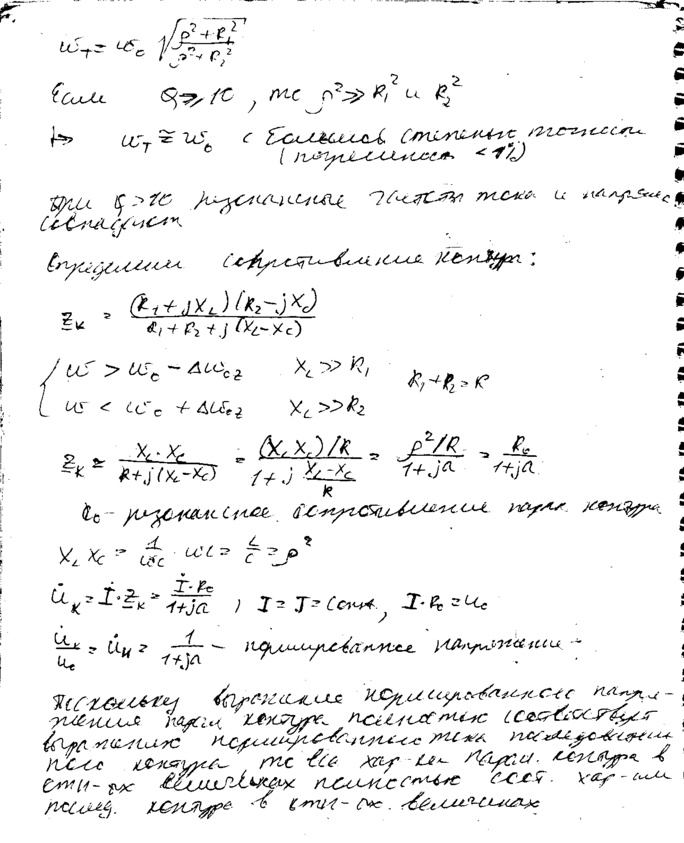 ω_T = ω_0 √((ρ² + R_1²)/(ρ² + R_2²))
Если Q ≥ 10, то ρ² ≫ R_1² и R_2²
ω_T ≅ ω_0 с большой степенью точности
(погрешность < 1%)
При Q > 10 резонансные частоты тока и напряж
совпадают
Определим сопротивление контура:
Z_K = (R_1 + jX_L)(R_2 - jX_C) / (R_1 + R_2 + j(X_L - X_C))
ω > ω_0 - Δω_0z X_L ≫ R_1 R_1 + R_2 = R
ω < ω_0 + Δω_0z X_L ≫ R_2
Z_K ≅ X_L · X_C / (R + j(X_L - X_C)) = (X_L X_C)/R / (1 + j (X_L - X_C)/R) = ρ²/R / (1 + ja) = R_0 / (1 + ja)
R_0 - резонансное сопротивление парал. контура
X_L X_C = 1/ωC · ωL = L/C = ρ²
U̇_K = İ · Z_K = İ · R_0 / (1 + ja), I = J = const, I · R_0 = U_0
U̇_K / U_0 = U̇_H = 1 / (1 + ja) - нормированное напряжение -
Поскольку выражение нормированного напря-
жения парал контура полностью соответствует
выражению нормированного тока последователь
ного контура то все хар-ки парал. контура в
отн-ых величинах полностью соот. хар-ам
послед. контура в отн-ых. величинах